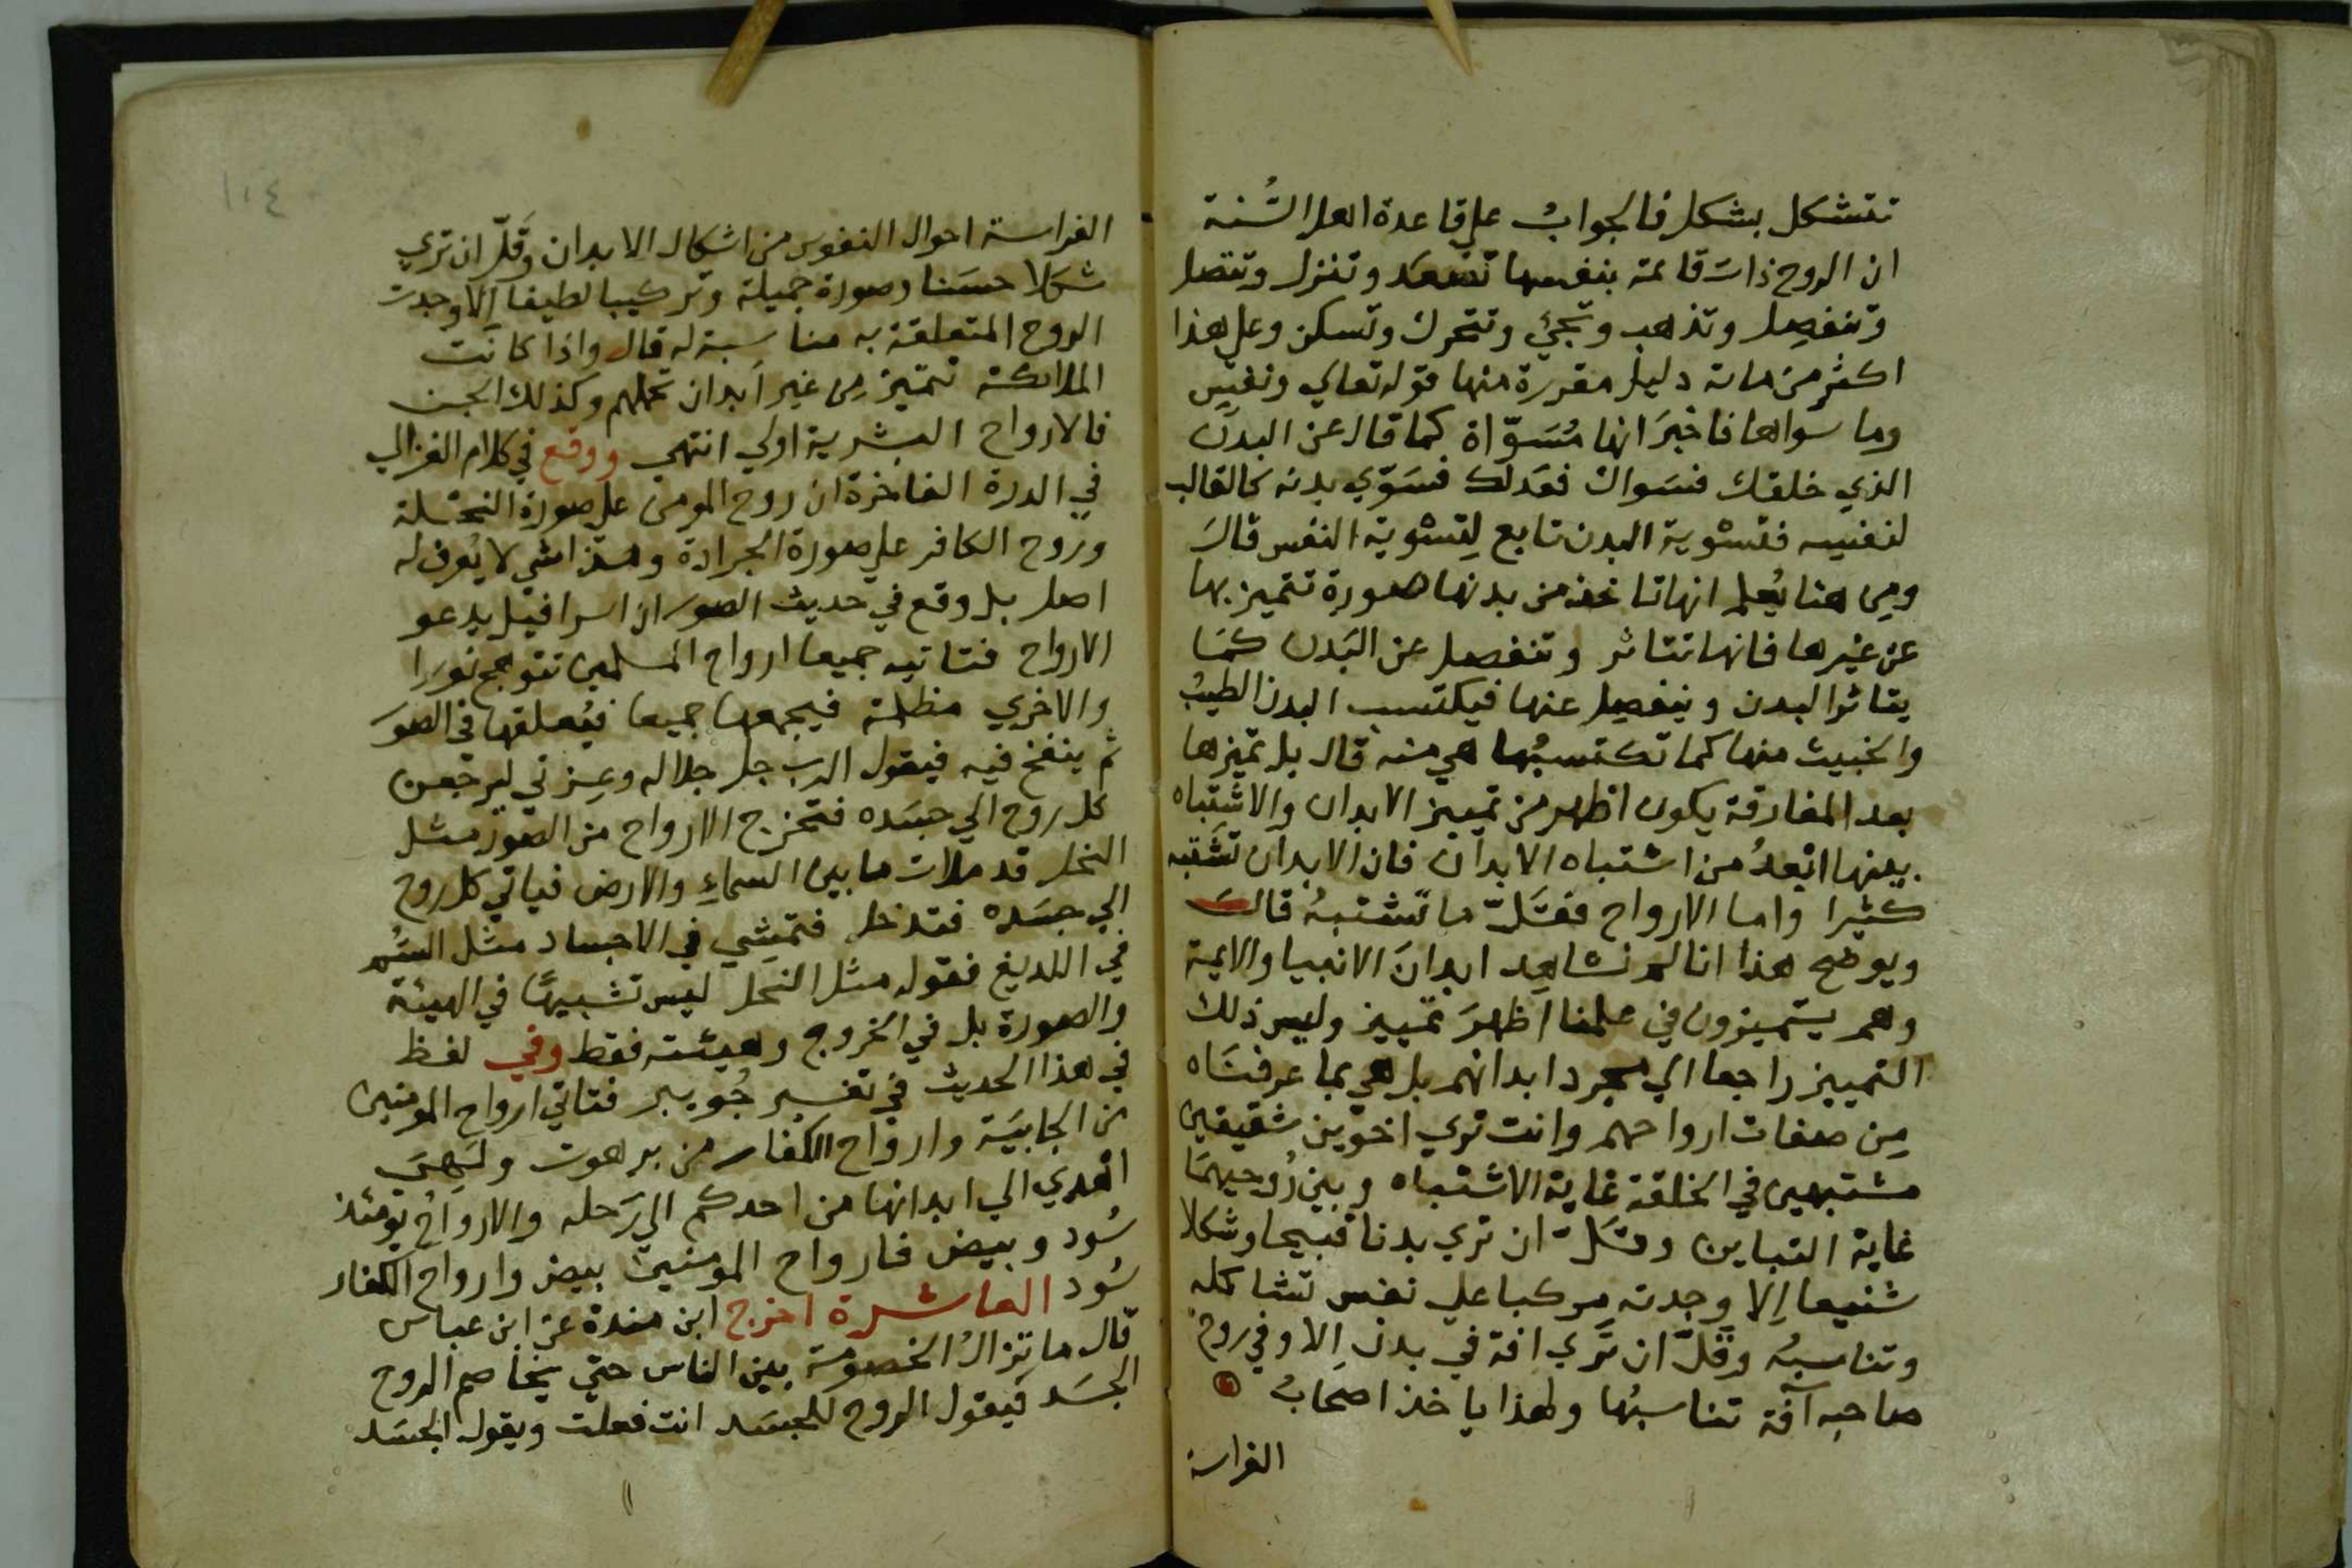 تتشكل بشكل فالجوابُ على قاعدة اهل السُّنة
ان الروح ذات قائمة بنفسها تصعَد وتنزل وتتصل
وتنفصِل وتذهب وتجيُ وتتحرك وتسكن وعلى هذا
اكثر من مائة دليل مقررة منها قوله تعالي ونفسٍ
وما سواها فاخبَر انها مُسَوّاة كما قال عن البدن
الذي خلقك فسَواك فعَدلك فسَوّي بدنه كالقالب
لنفسِه فتسْوية البدن تابع لِتسْوية النفس قالَ
ومِن هنا يُعلم انها تاخذ من بدنها صورة تتميز بها
عن غيرها فانها تتاثر وتنفصل عن البَدن كمَا
يتاثر البدن وينفصِل عنها فيكتسب البدن الطيبُ
والخبيث منها كما تكتسبُها هي منه قال بل تميّزها
بعد المفارقة يكون اظهر من تمييز الابدان والاشتباه
بينها ابْعدُ من اشتباه الابدان فان الابدان تشتَبه
كثيرا واما الارواح فقَلّ ما تَشتبهُ قالَ
ويوضح هذا انا لم نشاهِد ابدانَ الانبيا والايمة
وهم يتميزون في علمنا اظهرَ تمييز وليس ذلك
التمييز راجعا الي مجرد ابدانهم بل هي بما عرفنَاه
مِن صفات ارواحهم وانت تري اخوَين شقيقين
مشتبهين في الخلقة غاية الاشتباه وبين رُوحيهمَا
غاية التباين وقَلّ ان تري بدنا قبيحا وشكلا
شنيعا اِلا وجدته مركبا علي نفس تشاكله
وتناسبهُ وقَلَّ ان تَري افة في بدن اِلا وفي روح
صاحبه آفة تناسبُها ولهذا ياخذ اصحَابُ
الفراسة
١٠٤
الفراسة احوال النفوس من اشكال الابدان وقَلّ ان تري
شكلا حسَنا وصورة جميلة وتركيبا لطيفا اِلا وجدت
الروح المتعلقة به مناسبة له قال واذا كانت
الملائكة تتميّز مِن غير اَبدان تحملهم وكذلك الجن
فالارواح البشرية اولي انتهي ووقع في كلام الغزالي
في الدرة الفاخرة ان روح المومن على صورة النحْلة
وروح الكافر على صورة الجرادة وهذا شي لا يُعرف له
اصل بل وقع في حديث الصور ان اسرافيل يدعو
الارواح فتاتيه جميعا ارواح المسلمين تتوهج نورا
والاخري مظلمة فيجمعها جميعا فيُعلقها في الصوَر
ثم ينفخ فيه فيقول الرب جل جلاله وعِزتي ليرجعن
كل روح الي جسَده فتخرج الارواح من الصور مثل
النحل قد ملات ما بين السماءِ والارض فياتي كل روح
الي جسَده فتدخل فتمشِي في الاجساد مثل السُم
في اللديغ فقوله مثل النحل ليس تشبيهًا في الهيئة
والصورة بل في الخروج وهيئته فقط وفي لفظ
في هذا الحديث في تفسير جُويبر فتاتي ارواح المومنين
من الجابيَة وارواح الكفار من برهوت ولَهِيَ
اهدي الي ابدانها من احدكم الي رَحله والارواحُ يومئذ
سُود وبيض فارواح المومنين بيض وارواح الكفار
سُود العاشرة اخرج ابن مندة عن ابن عباس
قال ما تزالُ الخصومَة بين الناس حتي يخاصم الروح
الجسَد فيقول الروح للجسَد انت فعلت ويقول الجسَد